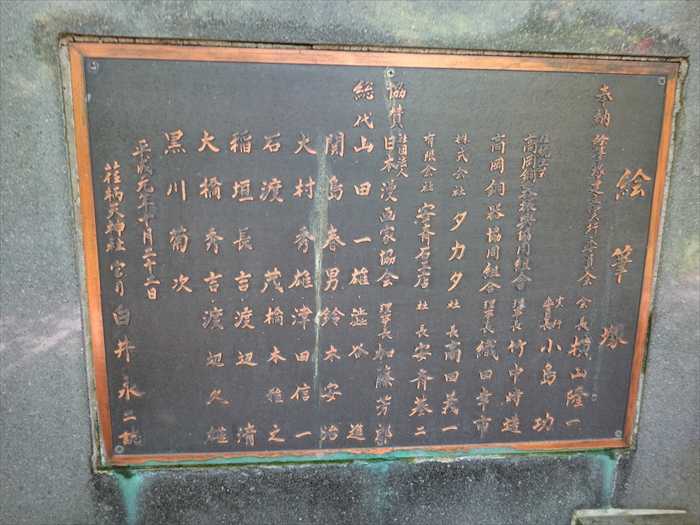 絵筆塚
奉納 絵筆塚建立実行委員会 会長 横山隆一
実行委員長 小島功
高岡銅器 協同組合 理事長 竹中時違
高岡銅器協同組合 理事長 織田幸市
株式会社 タカタ 社長 高田義一
有限会社 安斉石店 社長 安斉基二
協賛 社団法人 日本漫画家協会 理事長 加藤芳郎
総代 山田一雄 澁谷 進
関島春男 鈴木安治
大村秀雄 津田信一
石渡 茂 橋本雅之
稲垣長吉 渡辺 清
大橋秀吉 渡辺久雄
黒川菊次
平成元年十月二十二日
荏柄天神社 宮司 白井永二誌